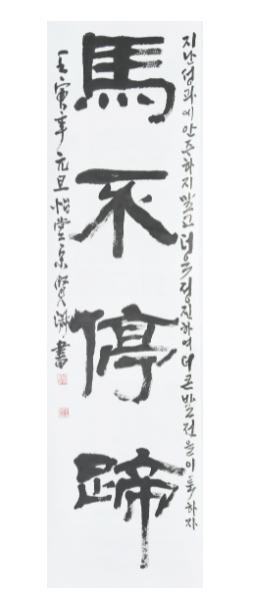 지난 성과에 안주하지 말고 더욱 정진하여 더 큰 발전을 이룩하자
馬不停蹄
壬寅年 元旦 怡堂 賢 書